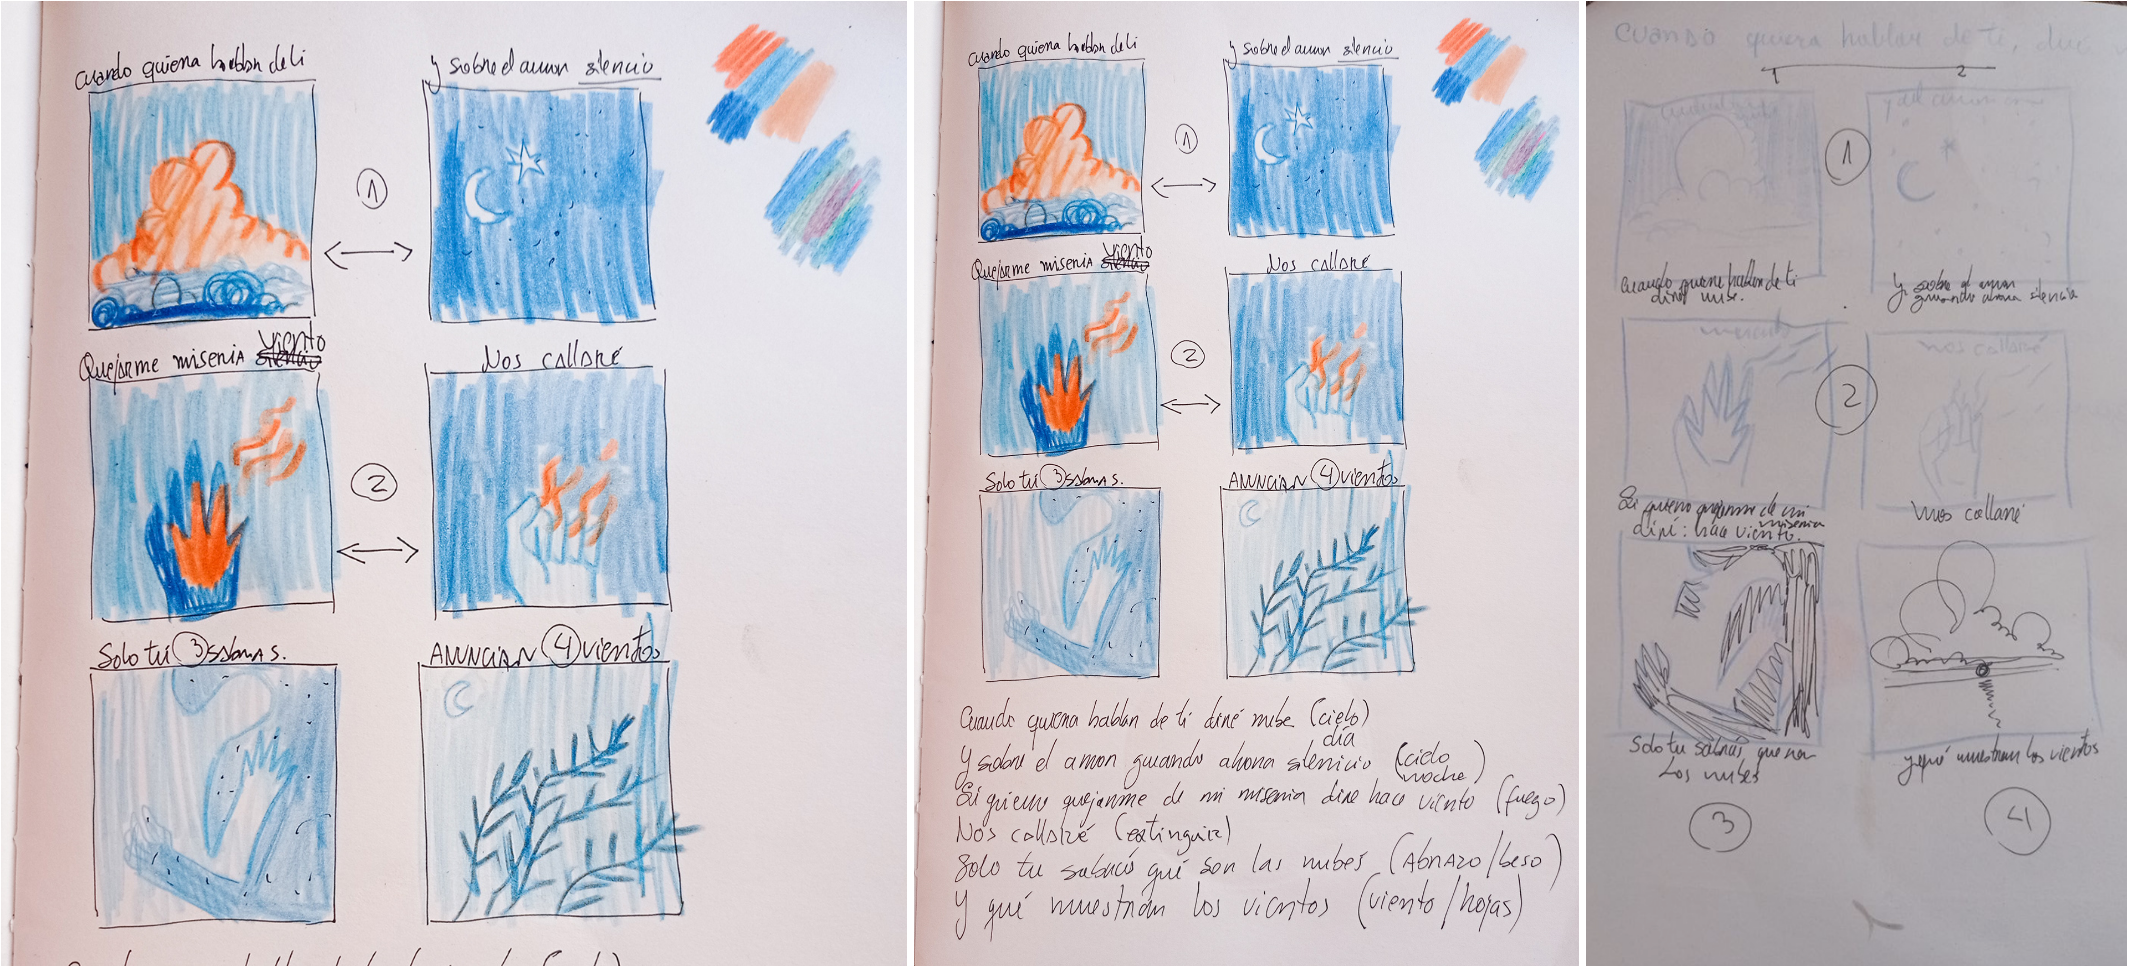 Cuando quiera hablar de ti
y sobre el amor silencio
1
Quejarme miseria viento
Nos callaré
2
Solo tú 3 sabrás.
ANUNCIAN 4 vientos
Cuando quiera hablar de ti
y sobre el amor silencio
1
Quejarme miseria viento
Nos callaré
2
Solo tú 3 sabrás.
ANUNCIAN 4 vientos
Cuando quiera hablar de ti diré nube (cielo)
día
y sobre el amor guardo ahora silencio (cielo
noche)
Si quiero quejarme de mi miseria diré hace viento (fuego)
Nos callaré (extinguir)
Solo tu sabrás qué son las nubes (Abrazo/beso)
Y qué muestran los vientos (viento/hojas)
Cuando quiera hablar de ti, diré
1 2
1
Cuando quiera hablar de ti
diré nube.
y sobre el amor
guardo ahora silencio
nos callaré
2
Si quiero quejarme de mi
miseria
diré: hace viento.
nos callaré
Solo tu sabrás, que son
las nubes
y qué muestran los vientos
3
4